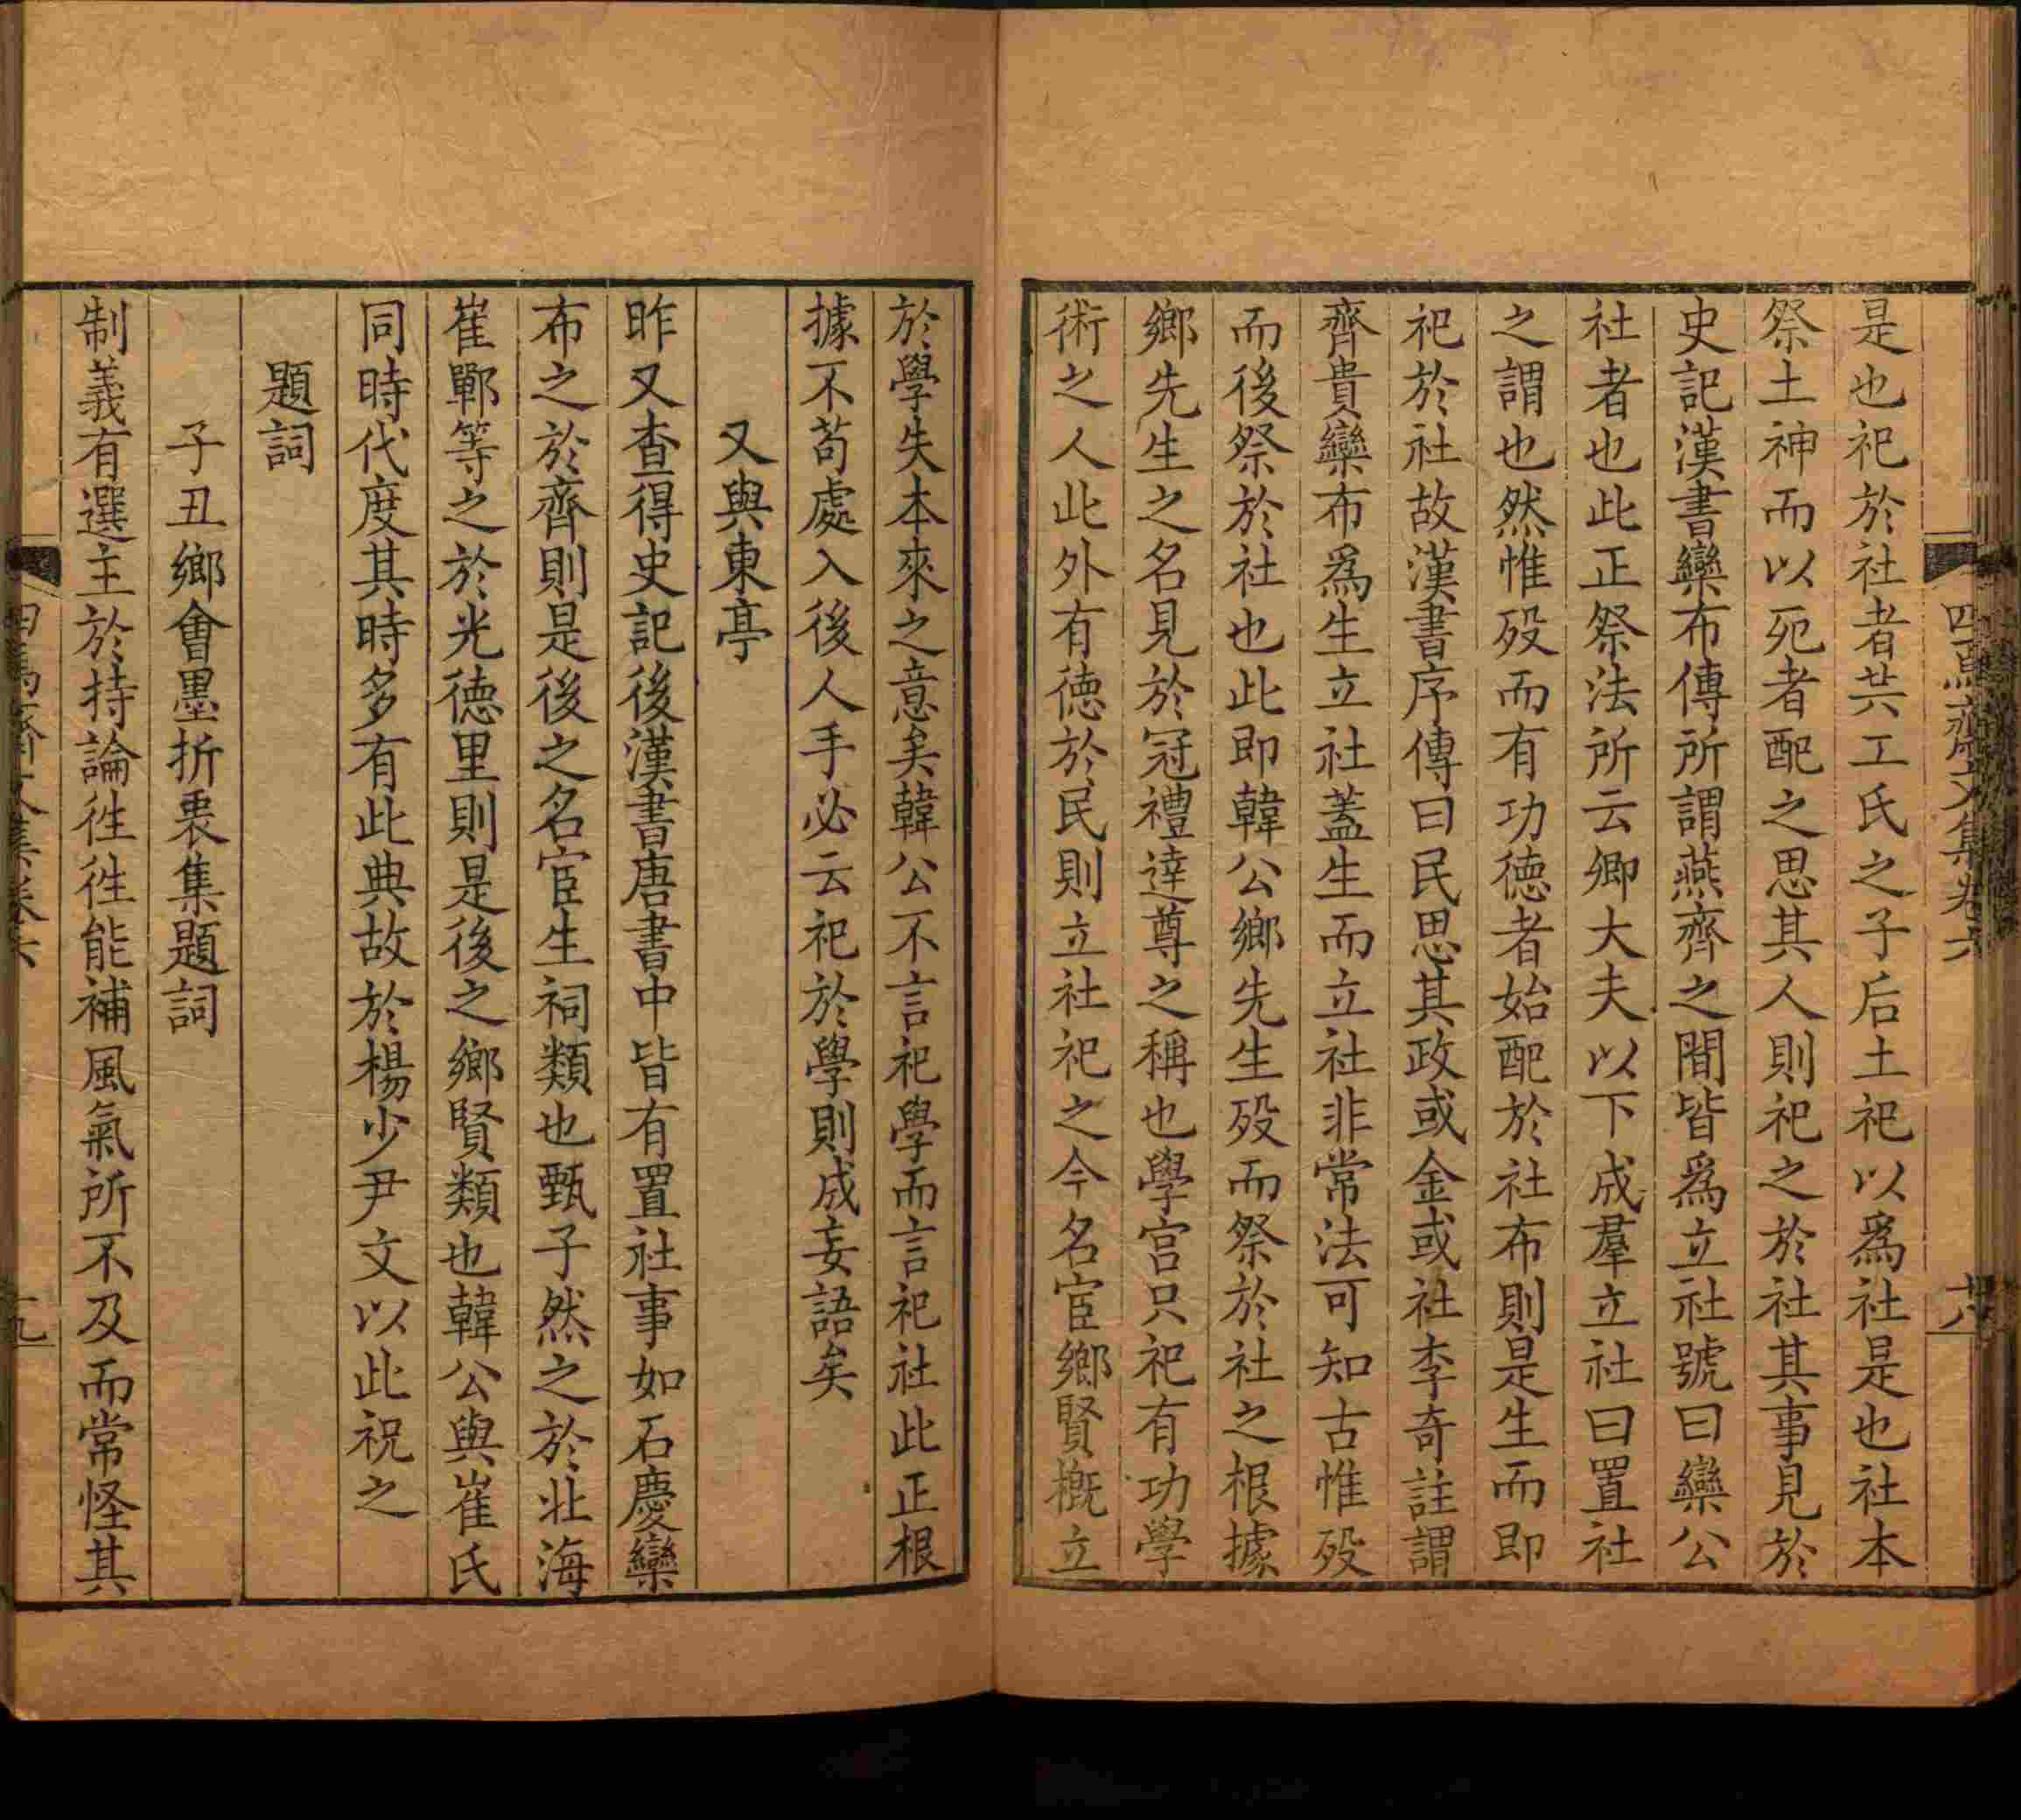 四焉齋文集卷六
十八
是也祀於社者共工氏之子后土祀以爲社是也社本
祭土神而以死者配之思其人則祀之於社其事見於
史記漢書欒布傳所謂燕齊之間皆爲立社號曰欒公
社者也此正祭法所云卿大夫以下成羣立社曰置社
之謂也然惟歿而有功德者始配於社布則是生而即
祀於社故漢書序傳曰民思其政或金或社李奇註謂
齊貴欒布爲生立社蓋生而立社非常法可知古惟歿
而後祭於社也此即韓公鄉先生歿而祭於社之根據
鄉先生之名見於冠禮達尊之稱也學宫只祀有功學
術之人此外有德於民則立社祀之今名宦鄉賢概立
於學失本來之意矣韓公不言祀學而言祀社此正根
據不苟處入後人手必云祀於學則成妄語矣
又與東亭
昨又查得史記後漢書唐書中皆有置社事如石慶欒
布之於齊則是後之名宦生祠類也甄子然之於北海
崔鄲等之於光德里則是後之鄉賢類也韓公與崔氏
同時代度其時多有此典故於楊少尹文以此祝之
題詞
子丑鄉會墨折衷集題詞
制義有選主於持論徃徃能補風氣所不及而常怪其
四焉齋文集卷六
十九